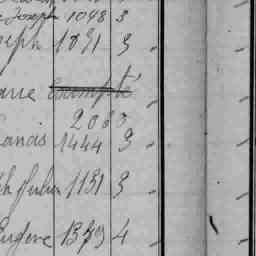 Joseph 1048 3
seph 1031 3
arie Exempté
2083
rancis 1444 3
ph Julien 1131 3
Eugene 1379 4